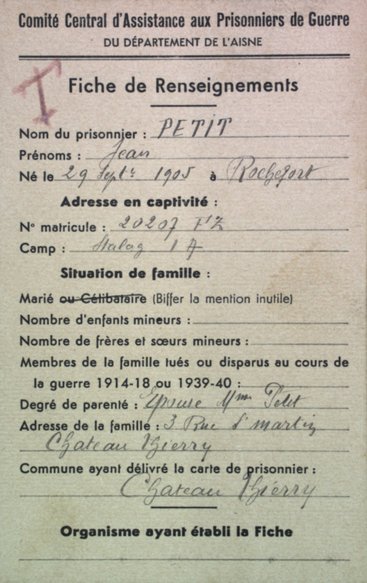 Comité Central d'Assistance aux Prisonniers de Guerre
DU DÉPARTEMENT DE L'AISNE
I
Fiche de Renseignements
Nom du prisonnier : PETIT
Prénoms : Jean
Né le 29 Septre 1905 à Rochefort
Adresse en captivité :
N° matricule : 20207
Camp : Stalag 1 A
Situation de famille :
Marié ou Célibataire (Biffer la mention inutile)
Nombre d'enfants mineurs :
Nombre de frères et sœurs mineurs :
Membres de la famille tués ou disparus au cours de
la guerre 1914-18 ou 1939-40 :
Degré de parenté : Epouse Mme Petit
Adresse de la famille : 3 Rue St martin
Chateau Thierry
Commune ayant délivré la carte de prisonnier :
Chateau Thierry
Organisme ayant établi la Fiche